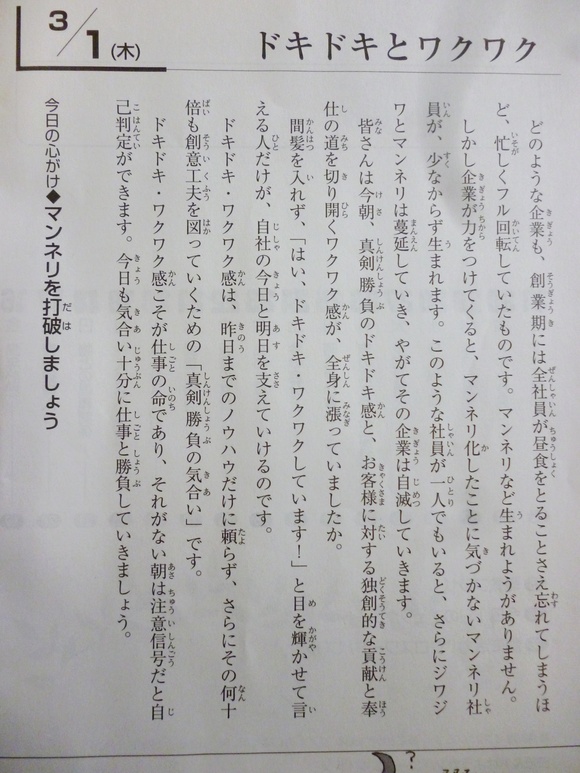 3/1(木)
ドキドキとワクワク
どのような企業も、創業期には全社員が昼食をとることさえ忘れてしまうほ
ど、忙しくフル回転していたものです。マンネリなど生まれようがありません。
しかし企業が力をつけてくると、マンネリ化したことに気づかないマンネリ社
員が、少なからず生まれます。このような社員が一人でもいると、さらにジワジ
ワとマンネリは蔓延していき、やがてその企業は自滅していきます。
皆さんは今朝、真剣勝負のドキドキ感と、お客様に対する独創的な貢献と奉
仕の道を切り開くワクワク感が、全身に漲っていましたか。
間髪を入れず、「はい、ドキドキ・ワクワクしています!」と目を輝かせて言
える人だけが、自社の今日と明日を支えていけるのです。
ドキドキ・ワクワク感は、昨日までのノウハウだけに頼らず、さらにその何十
倍も創意工夫を図っていくための「真剣勝負の気合い」です。
ドキドキ・ワクワク感こそが仕事の命であり、それがない朝は注意信号だと自
己判定ができます。今日も気合い十分に仕事と勝負していきましょう。
今日の心がけ◆マンネリを打破しましょう
?